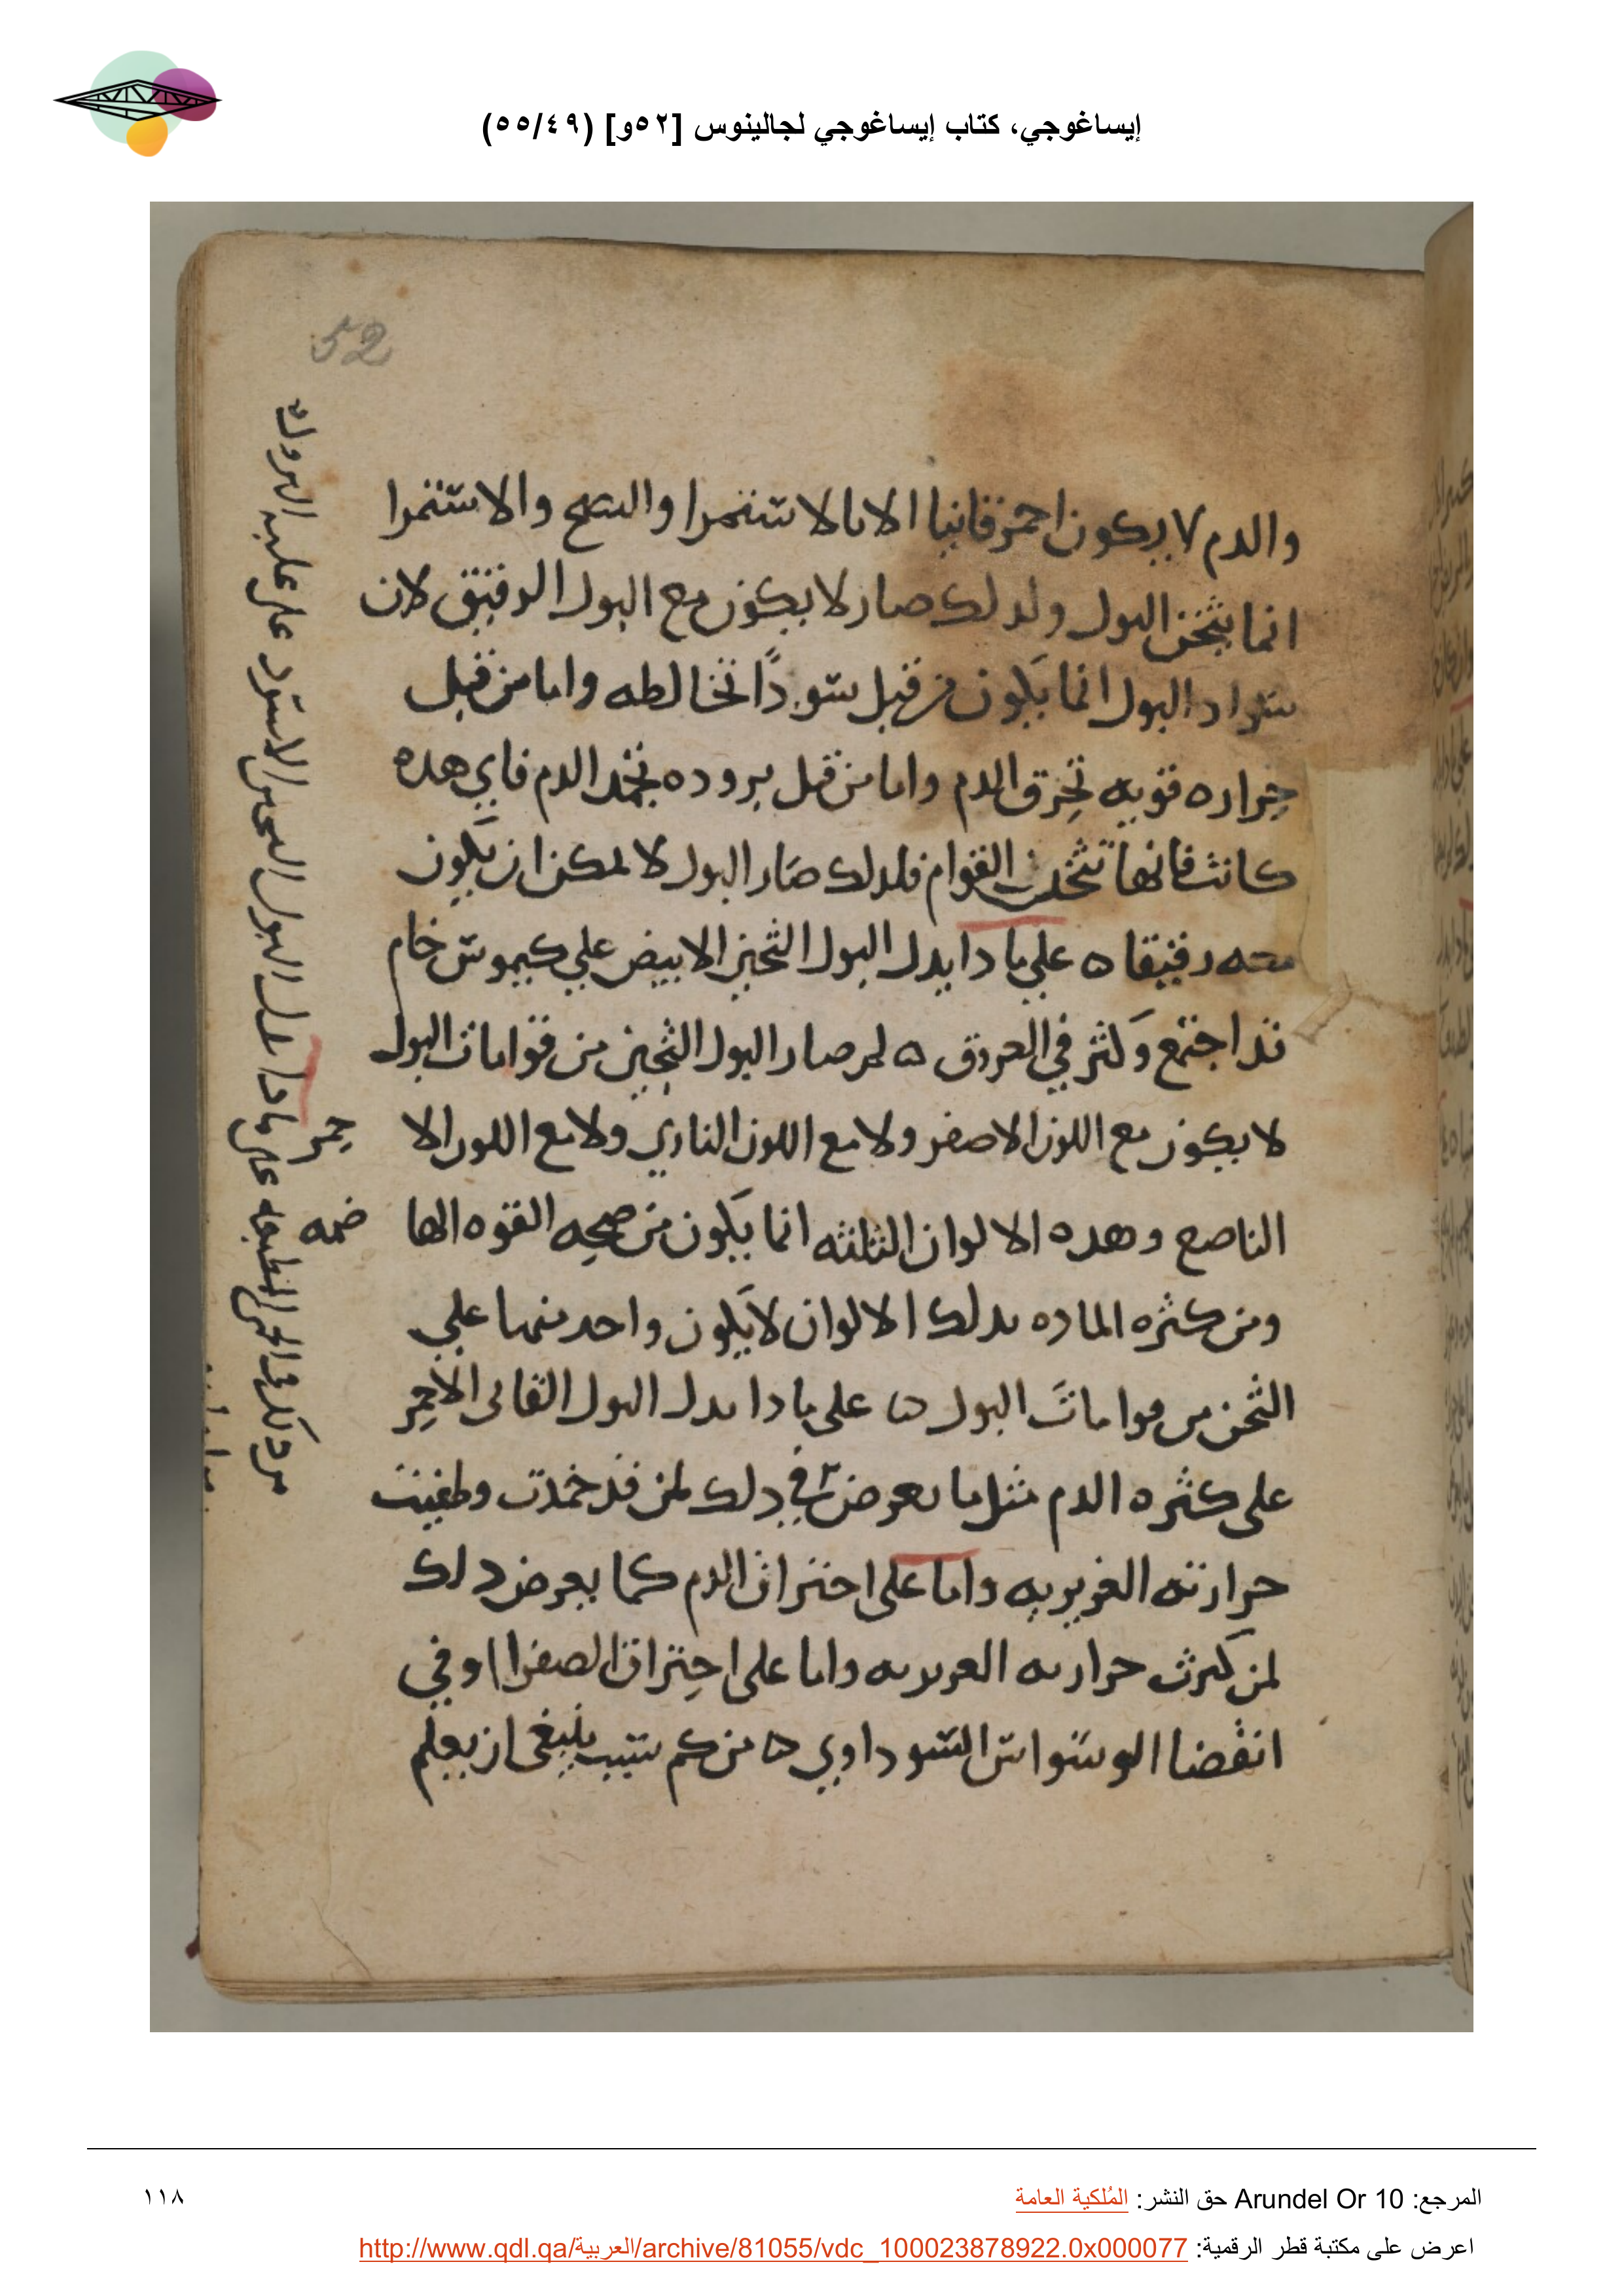 إيساغوجي، كتاب إيساغوجي لجالينوس [٥٢و] (٥٥/٤٩)
52
والدم لا يكون احمر قانيا الا بالاستمرا والنضج والاستمرا
انما يثخن البول ولدلك صار لا يكون مع البول الرقيق لان
سواد البول انما يكون من قبل سودا تخالطه واما من قبل
حراره قويه تحرق الدم واما من قبل بروده تجمد الدم فاي هده
كانت فانها تثخن القوام فلدلك صار البول لا يمكن ان يكون
معه رقيقا ه علي مادا يدل البول الثخين الابيض علي كيموس خام
قد اجتمع وكثر في العروق ه لم صار البول الثخين من قوامات البول
لا يكون مع اللون الاصفر ولا مع اللون الناري ولا مع اللون الا
حمر
الناصع وهده الالوان الثلثه انما يكون من صحه القوه الها
ضمه
ومن كثره الماده بدلك الالوان لا يكون واحد منها علي
الثخن من قوامات البول ه على مادا يدل البول القانى الاحمر
على كثره الدم مثل ما يعرض في دلك لمن قد خمدت وطفيت
حرارته الغريزيه واما على احتراق الدم كما يعرض دلك
لمن كثرت حرارته الغريزيه واما على احتراق الصفرا او في
انقضا الوسواس السوداوي ه من كم سبب ينبغى ان يعلم
على مادا يدل البول الثخين الاسود على غلبه البرودة
المرجع: Arundel Or 10 حق النشر: المُلكية العامة
١١٨
اعرض على مكتبة قطر الرقمية: http://www.qdl.qa/العربية/archive/81055/vdc_100023878922.0x000077